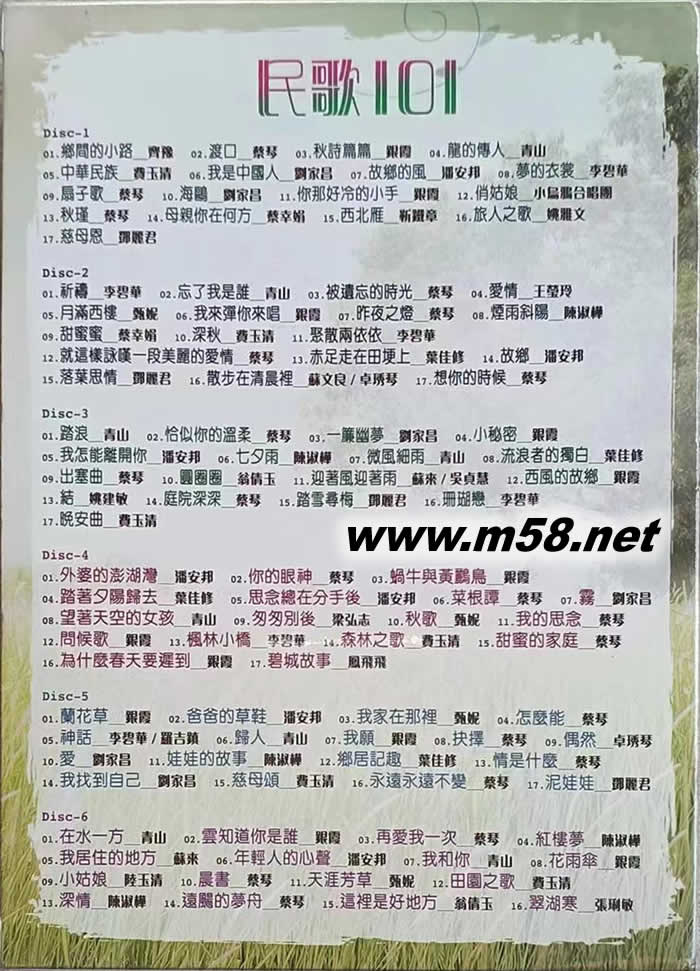 民歌101
Disc-1
01.鄉間的小路__齊豫 02.渡口__蔡琴 03.秋詩篇篇__銀霞 04.龍的傳人__青山
05.中華民族__費玉清 06.我是中國人__劉家昌 07.故鄉的風__潘安邦 08.夢的衣裳__李碧華
09.扇子歌__蔡琴 10.海鷗__劉家昌 11.你那好冷的小手__銀霞 12.俏姑娘__小烏鴉合唱團
13.秋瑾__蔡琴 14.母親你在何方__蔡幸娟 15.西北雁__靳鐵章 16.旅人之歌__姚雅文
17.慈母恩__鄧麗君
Disc-2
01.祈禱__李碧華 02.忘了我是誰__青山 03.被遺忘的時光__蔡琴 04.愛情__王瑩玲
05.月滿西樓__甄妮 06.我來彈你來唱__銀霞 07.昨夜之燈__蔡琴 08.煙雨斜陽__陳淑樺
09.甜蜜蜜__蔡幸娟 10.深秋__費玉清 11.聚散兩依依__李碧華
12.就這樣詠嘆一段美麗的愛情__蔡琴 13.赤足走在田埂上__葉佳修 14.故鄉__潘安邦
15.落葉思情__鄧麗君 16.散步在清晨裡__蘇文良/卓琇琴 17.想你的時候__蔡琴
Disc-3
01.踏浪__青山 02.恰似你的溫柔__蔡琴 03.一簾幽夢__劉家昌 04.小秘密__銀霞
05.我怎能離開你__潘安邦 06.七夕雨__陳淑樺 07.微風細雨__青山 08.流浪者的獨白__葉佳修
09.出塞曲__蔡琴 10.圓圈圈__翁倩玉 11.迎著風迎著雨__蘇來/吳貞慧 12.西風的故鄉__銀霞
13.結__姚建敏 14.庭院深深__蔡琴 15.踏雪尋梅__鄧麗君 16.珊瑚戀__李碧華
17.晚安曲__費玉清
www.m58.net
Disc-4
01.外婆的澎湖灣__潘安邦 02.你的眼神__蔡琴 03.蝸牛與黃鸝鳥__銀霞
04.踏著夕陽歸去__葉佳修 05.思念總在分手後__潘安邦 06.菜根譚__蔡琴 07.霧__劉家昌
08.望著天空的女孩__青山 09.匆匆別後__梁弘志 10.秋歌__甄妮 11.我的思念__蔡琴
12.問候歌__銀霞 13.楓林小橋__李碧華 14.森林之歌__費玉清 15.甜蜜的家庭__蔡琴
16.為什麼春天要遲到__銀霞 17.碧城故事__鳳飛飛
Disc-5
01.蘭花草__銀霞 02.爸爸的草鞋__潘安邦 03.我家在那裡__甄妮 04.怎麼能__蔡琴
05.神話__李碧華/羅吉鎮 06.歸人__青山 07.我願__銀霞 08.抉擇__蔡琴 09.偶然__卓琇琴
10.愛__劉家昌 11.娃娃的故事__陳淑樺 12.鄉居記趣__葉佳修 13.情是什麼__蔡琴
14.我找到自己__劉家昌 15.慈母頌__費玉清 16.永遠永遠不變__蔡琴 17.泥娃娃__鄧麗君
Disc-6
01.在水一方__青山 02.雲知道你是誰__銀霞 03.再愛我一次__蔡琴 04.紅樓夢__陳淑樺
05.我居住的地方__蘇來 06.年輕人的心聲__潘安邦 07.我和你__青山 08.花雨傘__銀霞
09.小姑娘__陸玉清 10.晨書__蔡琴 11.天涯芳草__甄妮 12.田園之歌__費玉清
13.深情__陳淑樺 14.遠颺的夢舟__蔡琴 15.這裡是好地方__翁倩玉 16.翠湖寒__張琍敏